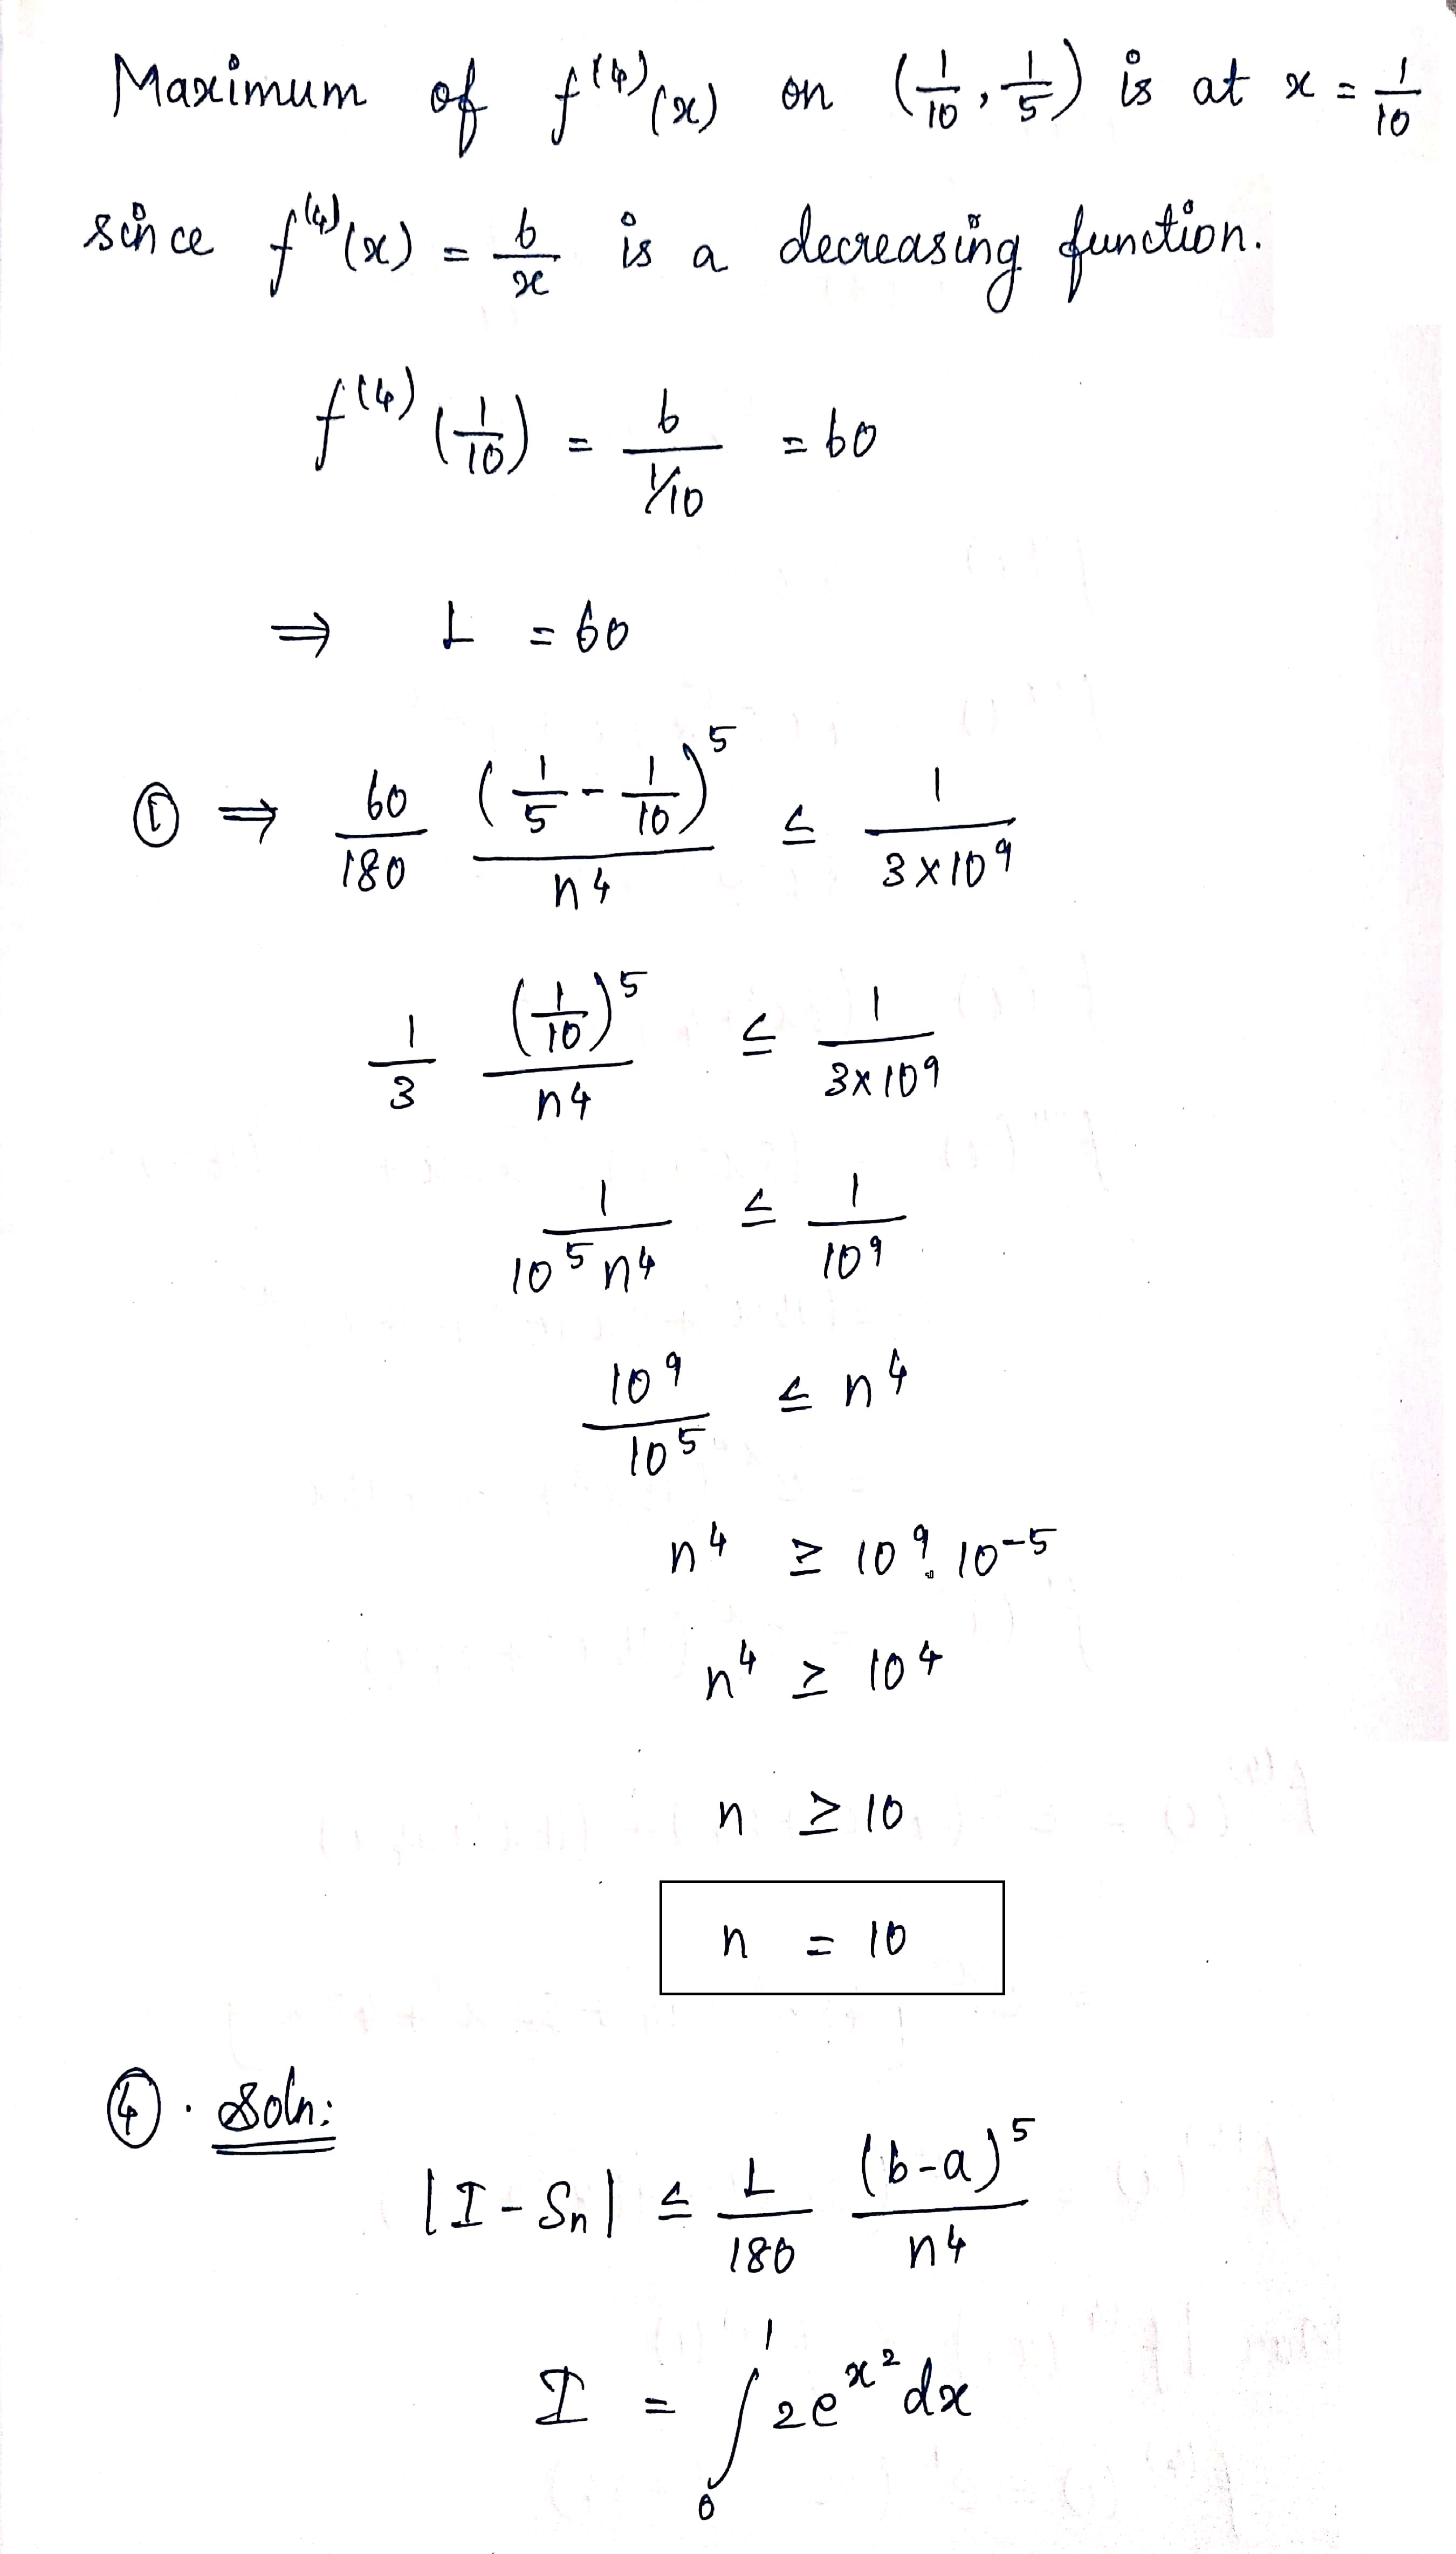 Maximum of f⁽⁴⁾(x) on (1/10, 1/5) is at x = 1/10
since f⁽⁴⁾(x) = 6/x is a decreasing function.
f⁽⁴⁾(1/10) = 6/(1/10) = 60
⇒ L = 60
① ⇒ 60/180 (1/5 - 1/10)⁵/n⁴ ≤ 1/(3×10⁹)
1/3 (1/10)⁵/n⁴ ≤ 1/(3×10⁹)
1/(10⁵n⁴) ≤ 1/10⁹
10⁹/10⁵ ≤ n⁴
n⁴ ≥ 10⁹.10⁻⁵
n⁴ ≥ 10⁴
n ≥ 10
n = 10
④. Soln:
|I - Sₙ| ≤ L/180 (b-a)⁵/n⁴
I = ∫₀¹ 2eˣ² dx